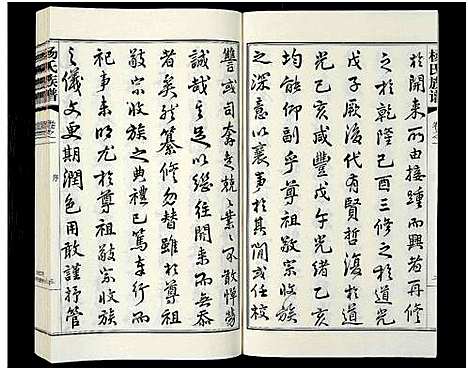 楊氏族譜
卷之一
於開來而由接踵而興者再修
之於乾隆己酉三修之於道光
戊子厥後代有賢哲復於道光
己亥咸豐戊午光緒乙亥
均能仰副乎尊祖敬宗收族
之深意以襄事於其間或任校
讐或司奔走兢兢業業不敢憚勞
誠哉足以繼往開來而無忝
者矣然纂修勿替雖於尊祖
敬宗收族之典禮已篤奉行而
祀事未明尤於尊祖敬宗收族
之儀文更期潤色用敢謹抒管
楊氏族譜
卷之一
序